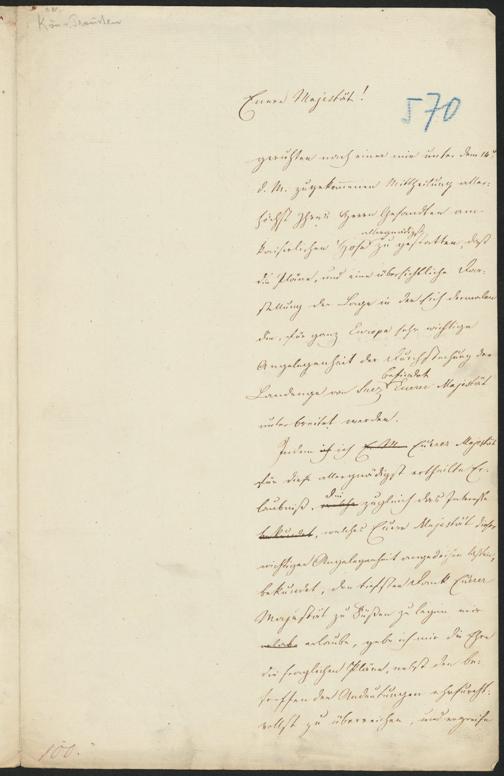 Kön. Preußen
Euere Majestät!
570
geruhten nach einer mir unter dem 14t
d. M. zugekommenen Mittheilung aller-
höchst Ihres Herrn Gesandten am
allergnädigst
kaiserlichen Hofe zu gestatten, daß
die Pläne, und eine übersichtliche Dar-
stellung der Lage in der sich dermalen
die, für ganz Europa sehr wichtige
Angelegenheit der Durchstechung der
befindet
Landenge von Suez Euerer Majestät
unterbreitet werden.
Indem ich ich E. M. Euerer Majestät
für diese allergnädigst ertheilte Er-
die
laubniß, welche zugleich das Interesse
bekundet, welches Euere Majestät dieser
wichtigen Angelegenheit angedeihen lassen,
bekundet, den tiefsten Dank Euerer
Majestät zu Füßen zu legen mir
erlaube, gebe ich mir die Ehre
die fraglichen Pläne, nebst den be-
treffenden Andeutungen ehrfurcht-
vollst zu überreichen, und ergreife
100.